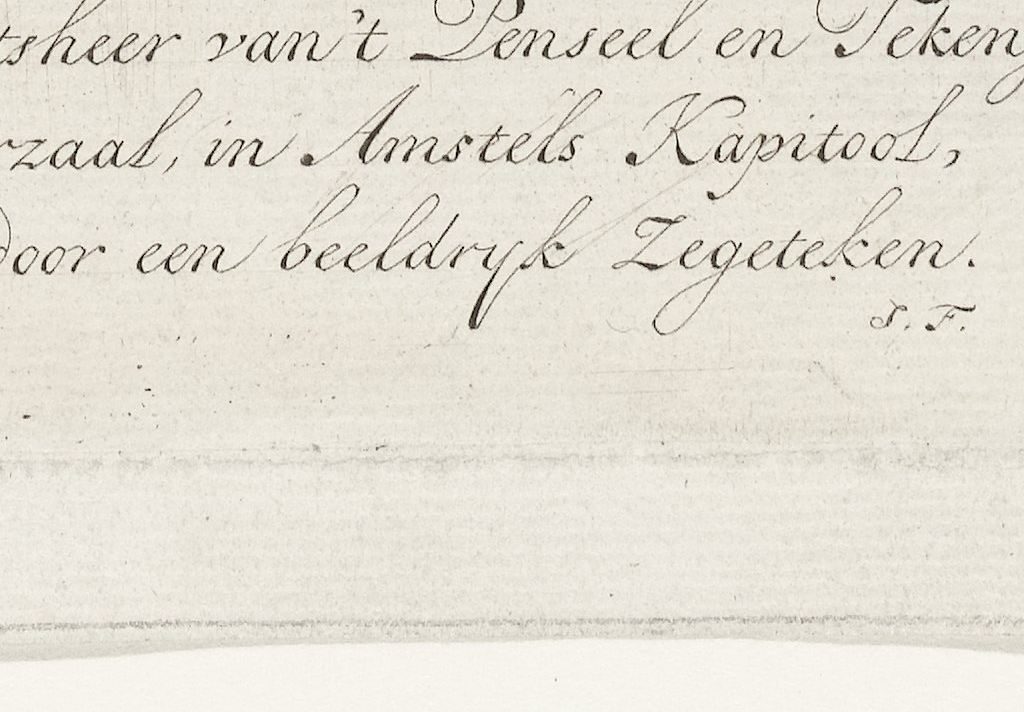 tsheer van't Penseel en Teken
rzaal, in Amstels Kapitool,
door een beeldryk Zegeteken.
J. F.